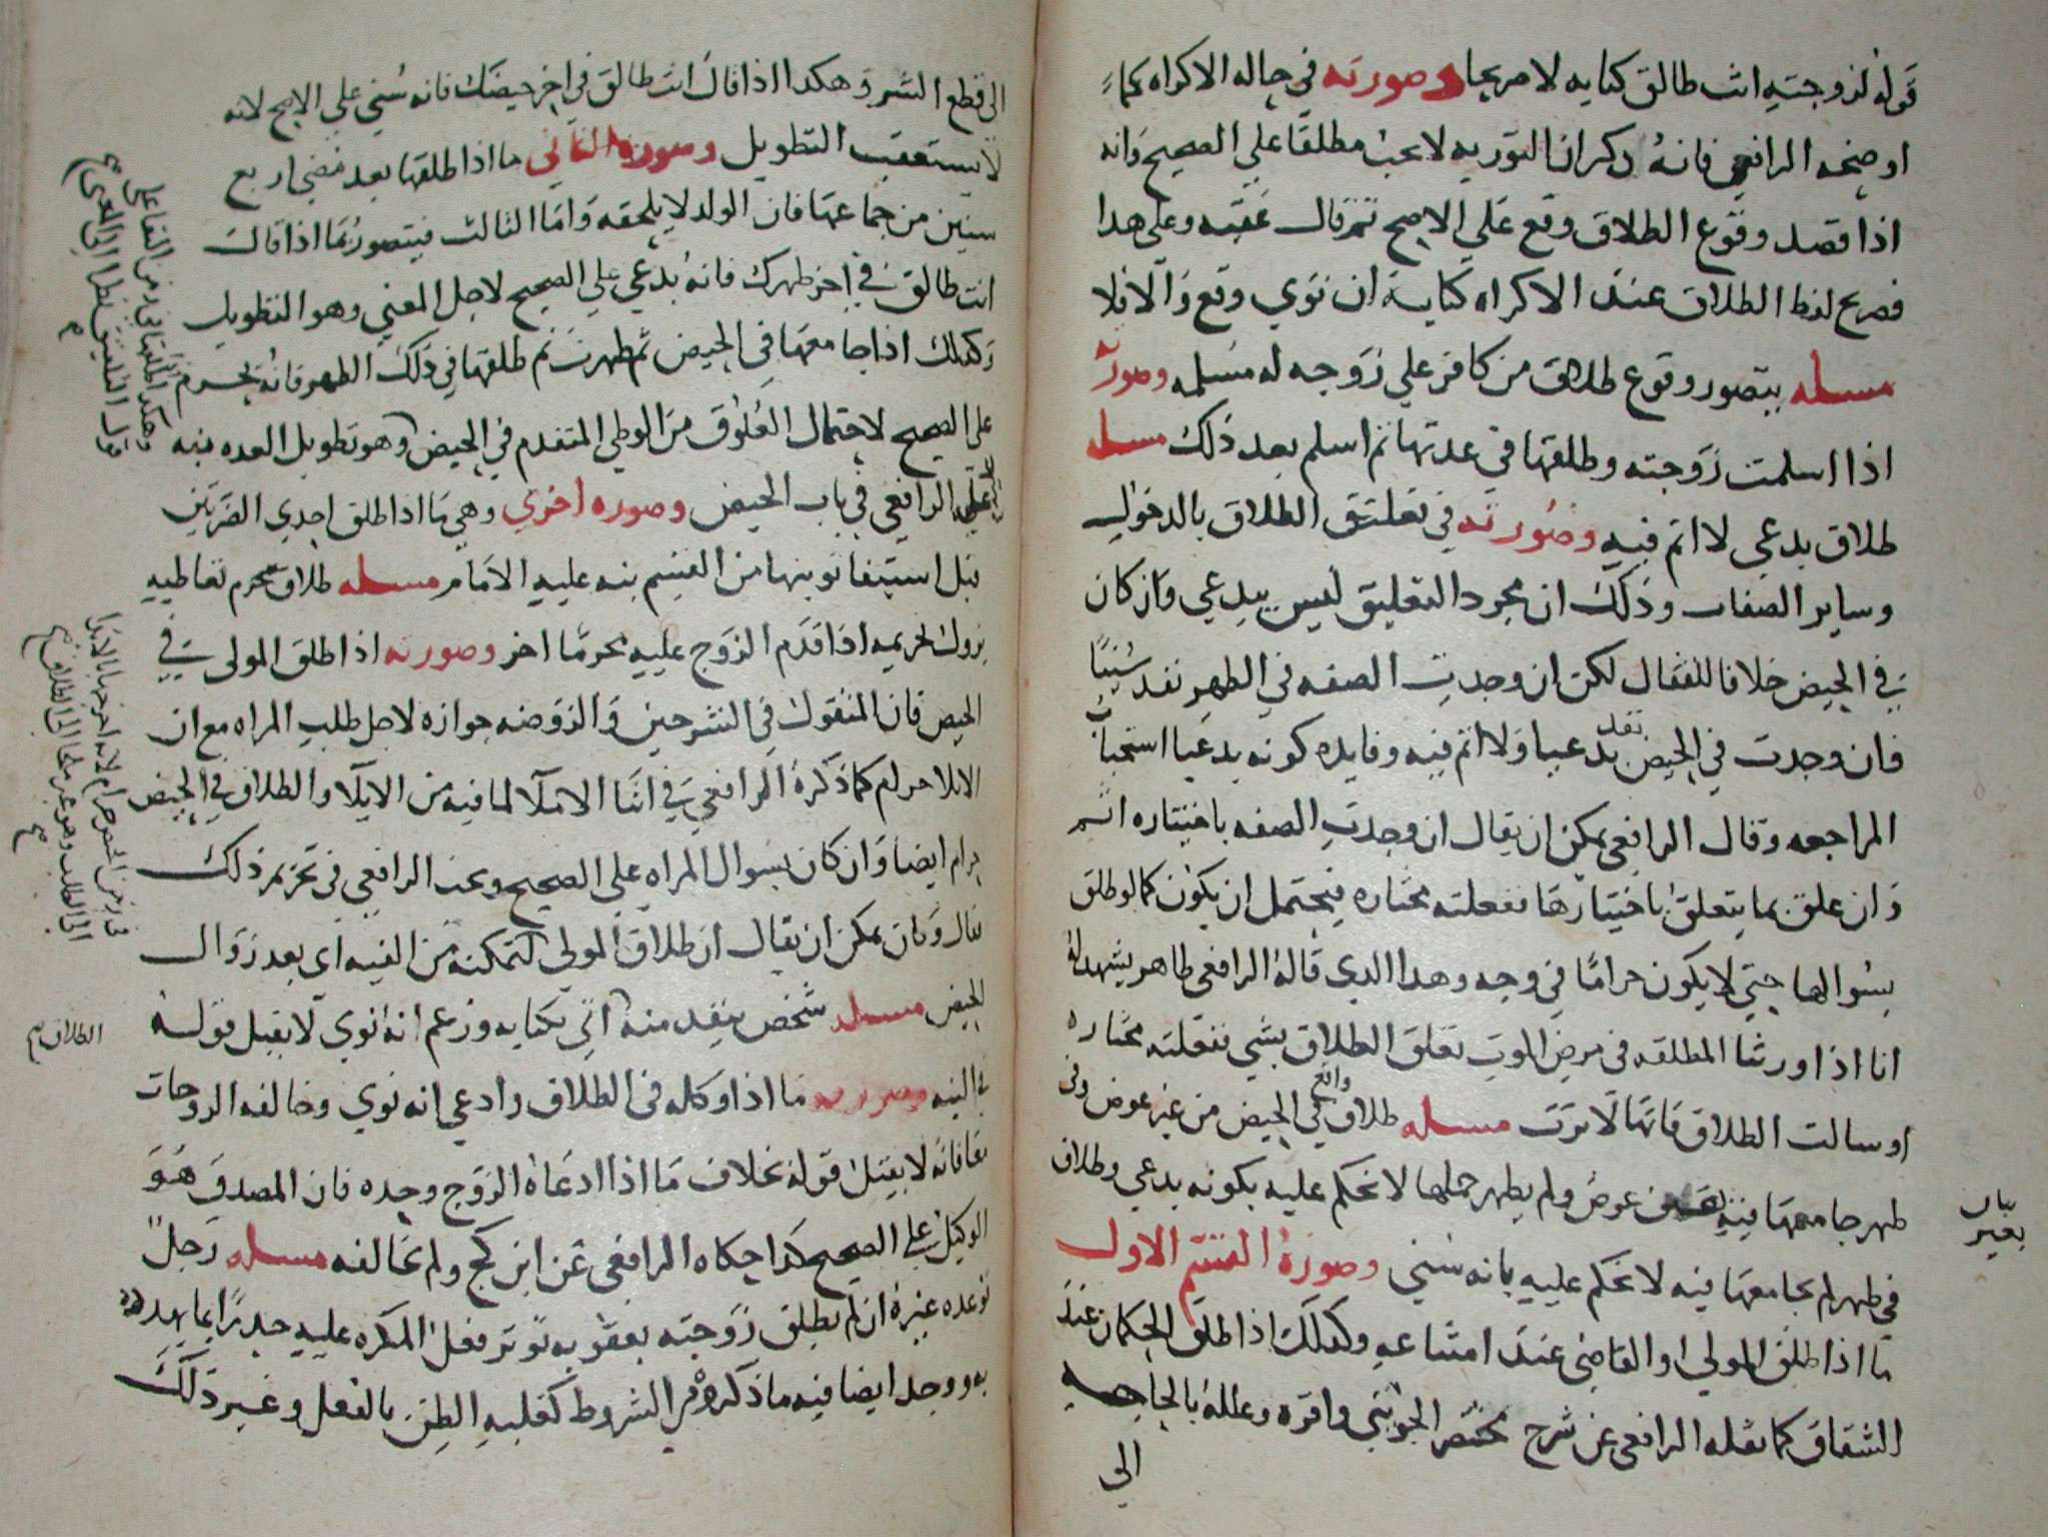 قوله لزوجته انت طالق كنايه لا صريحا وصورته في حاله الاكراه كما
اوضحه الرافعي فانه ذكر ان التوريه لا تجب مطلقا علي الصحيح وانه
اذا قصد وقوع الطلاق وقع علي الاصح ثم قال عقبه وعلي هذا
فصريح لفظ الطلاق عند الاكراه كناية ان نوي وقع والا فلا
مسله يتصور وقوع طلاق من كافر علي زوجه له مسلمه وصورته
اذا اسلمت زوجته وطلقها في عدتها ثم اسلم بعد ذلك مسله
طلاق بدعي لا اثم فيه وصورته في تعليق الطلاق بالدخول
وساير الصفات وذلك ان مجرد التعليق ليس ببدعي وان كان
في الحيض خلافا للقفال لكن ان وجدت الصفه في الطهر نفد سنيا
فان وجدت في الحيض نفد بدعيا ولا اثم فيه وفايده كونه بدعيا استحباب
المراجعه وقال الرافعي يمكن ان يقال ان وجدت الصفه باختياره اثم
وان علق بما يتعلق باختيارها ففعلته مختاره فيحتمل ان يكون كما لو طلق
بسوالها حتي لا يكون حراما في وجه وهدا الدي قاله الرافعي ظاهر يشهد له
انا اذا ورثنا المطلقه في مرض الموت تعلق الطلاق بشي ففعلته مختاره
او سالت الطلاق فانها لا ترث مسله طلاق واقع في الحيض من غير عوض وفي
طهر جامعها فيه عوض ولم يظهر حملها لا نحكم عليه بكونه بدعي وطلاق
بيان
بغير
في طهر لم يجامعها فيه لا نحكم عليه بانه سني وصورة القسم الاول
ما اذا طلق المولي او القاضي عند امتناعه وكدلك اذا طلق الحكمان عند
الشقاق كما نقله الرافعي عن شرح مختصر الجويني واقره وعلله بالحاجه
الي
الي قطع الشر وهكدا اذا قال انت طالق في اخر حيضك فانه سني علي الاصح لانه
لا يستعقب التطويل وصورة الثاني ما اذا طلقها بعد مضي اربع
سنين من جماعها فان الولد لا يلحقه واما الثالث فيتصور بما اذا قال
انت طالق في اخر طهرك فانه بدعي علي الصحيح لاجل المعني وهو التطويل
وكدلك اذا جامعها في الحيض ثم طهرت ثم طلقها في ذلك الطهر فانه يحرم
علي الصحيح لاحتمال العلوق من الوطي المتقدم في الحيض وهو تطويل العده نبه
عليه الرافعي في باب الحيض وصوره اخري وهي ما اذا طلق احدي الضرتين
قبل استيفا نوبتها من القسم نبه عليه الامام مسله طلاق محرم تعاطيه
يزول تحريمه اذا قدم الزوج عليه محرما اخر وصورته اذا طلق المولي في
الحيض فان المنقول في الشرحين والروضه جوازه لاجل طلب المراه مع ان
الايلا حرام كما ذكره الرافعي في اثنا الايلا لما فيه من الايلا والطلاق في الحيض
حرام ايضا وان كان بسوال المراه علي الصحيح وبحث الرافعي في تحريم ذلك
فقال وكان يمكن ان يقال ان طلاق المولي لتمكنه من الفيه اي بعد زوال
الحيض مسله شخص ينفد منه اتي بكنايه وزعم انه نوي لا يقبل قوله
الطلاق
في النيه وصورته ما اذا وكله في الطلاق وادعي انه نوي وخالفه الزوجان
معا فانه لا يقبل قوله بخلاف ما اذا ادعاه الزوج وحده فان المصدق هو
الوكيل علي الصحيح كدا حكاه الرافعي عن ابن كج ولم يخالفه مسله رجل
توعده غيره ان لم يطلق زوجته بعقوبه توثر فعل المكره عليه حدرا مما يهدده
به ووجد ايضا فيه ما ذكروه في الشروط كغلبه الظن بالفعل وغير ذلك